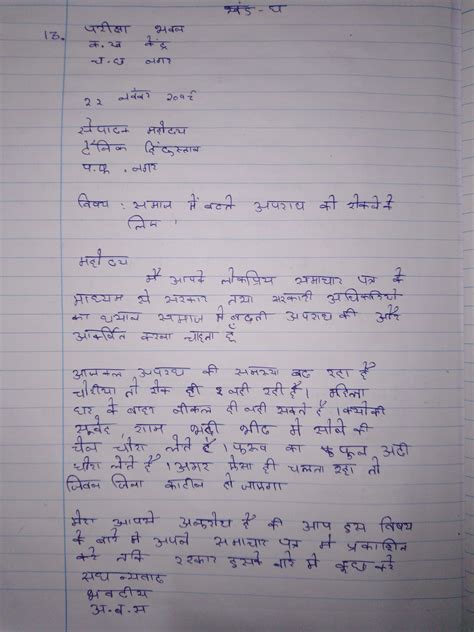 खंड - घ
13. परीक्षा भवन
क. ख केंद्र
च. छ नगर
२२ नवंबर
संपादक महोदय
दैनिक हिंदुस्तान
प. फ. नगर
विषय : समाज में बढते अपराध को रोकने के
लिए ।
महोदय
मैं आपके लोकप्रिय समाचार पत्र के
माध्यम से सरकार तथा सरकारी अधिकारियो
का ध्यान समाज मे बढती अपराध की ओर
आकर्षित करना चाहता हूँ
आजकल अपराध की समस्या बढ रहा है
चोरीया तो रोक ही नही रही है। महिला
घर के बाहर नीकल ही नही सकते है। क्योकी
सवेरे, शाम भरी भीड मे सोने की
चेन चोरा लेते है।
चोरा लेते है। अगर ऐसा ही चलता रहा तो
जिवन जिना कठीन हो जाएगा
मेरा आपसे अनुरोध है की आप इस विषय
के बारे मे अपने समाचार पत्र मे प्रकाशित
करे ताकि सरकार इसके बारे मे कुछ करे
सधन्यवाद
भवदीय
अ. ब. स